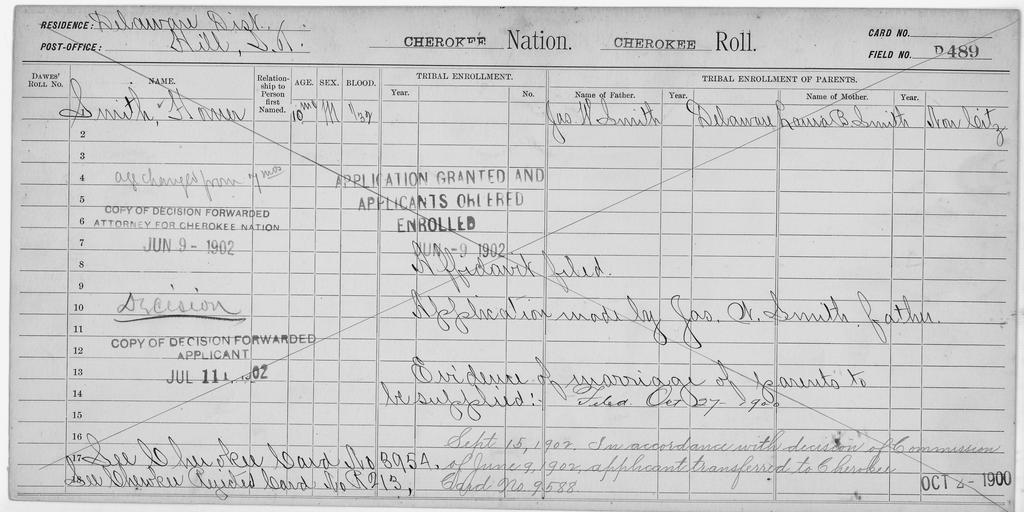 RESIDENCE: Delaware Dist.
POST-OFFICE: Hill, I.T.
CHEROKEE Nation. CHEROKEE Roll.
CARD NO.
FIELD NO. D489
DAWES' Roll No. NAME. Relationship to Person first Named. AGE. SEX. BLOOD. TRIBAL ENROLLMENT. TRIBAL ENROLLMENT OF PARENTS.
Year. No. Name of Father. Year. Name of Mother. Year.
Smith, Homer 10mo M 1/32 Jas W Smith Delaware Louisa B Smith Non Citz
2
3
4 age changed from 7 mos APPLICATION GRANTED AND
5 APPLICANTS ORDERED
COPY OF DECISION FORWARDED
6 ATTORNEY FOR CHEROKEE NATION ENROLLED
7 JUN 9 - 1902 JUN -9 1902
8 Affidavit filed.
9
10 Decision Application made by Jas. W. Smith, father.
11
COPY OF DECISION FORWARDED
12 APPLICANT
13 JUL 11 1902 Evidence of marriage of parents to
14 be supplied:- Filed Oct 27 - 1900
15
16 Sept 15, 1902. In accordance with decision of Commission
17 See Cherokee Card No 3954. of June 9, 1902, applicant transferred to Cherokee
18 See Cherokee Rejected Card No R213, Card No. 9588.
OCT 4 - 1900